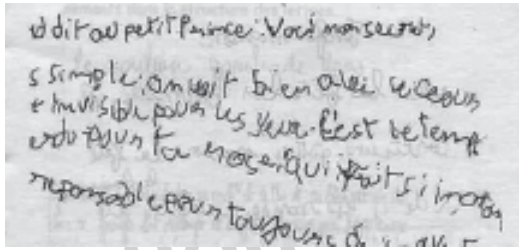 d dit au petit Prince. Voici mon secret,
s simple. on voit bien avec le ceour
t invisible pour les yeux. C'est le temp
erdu pour ta rose qui fait si impor
responsable pour toujours de